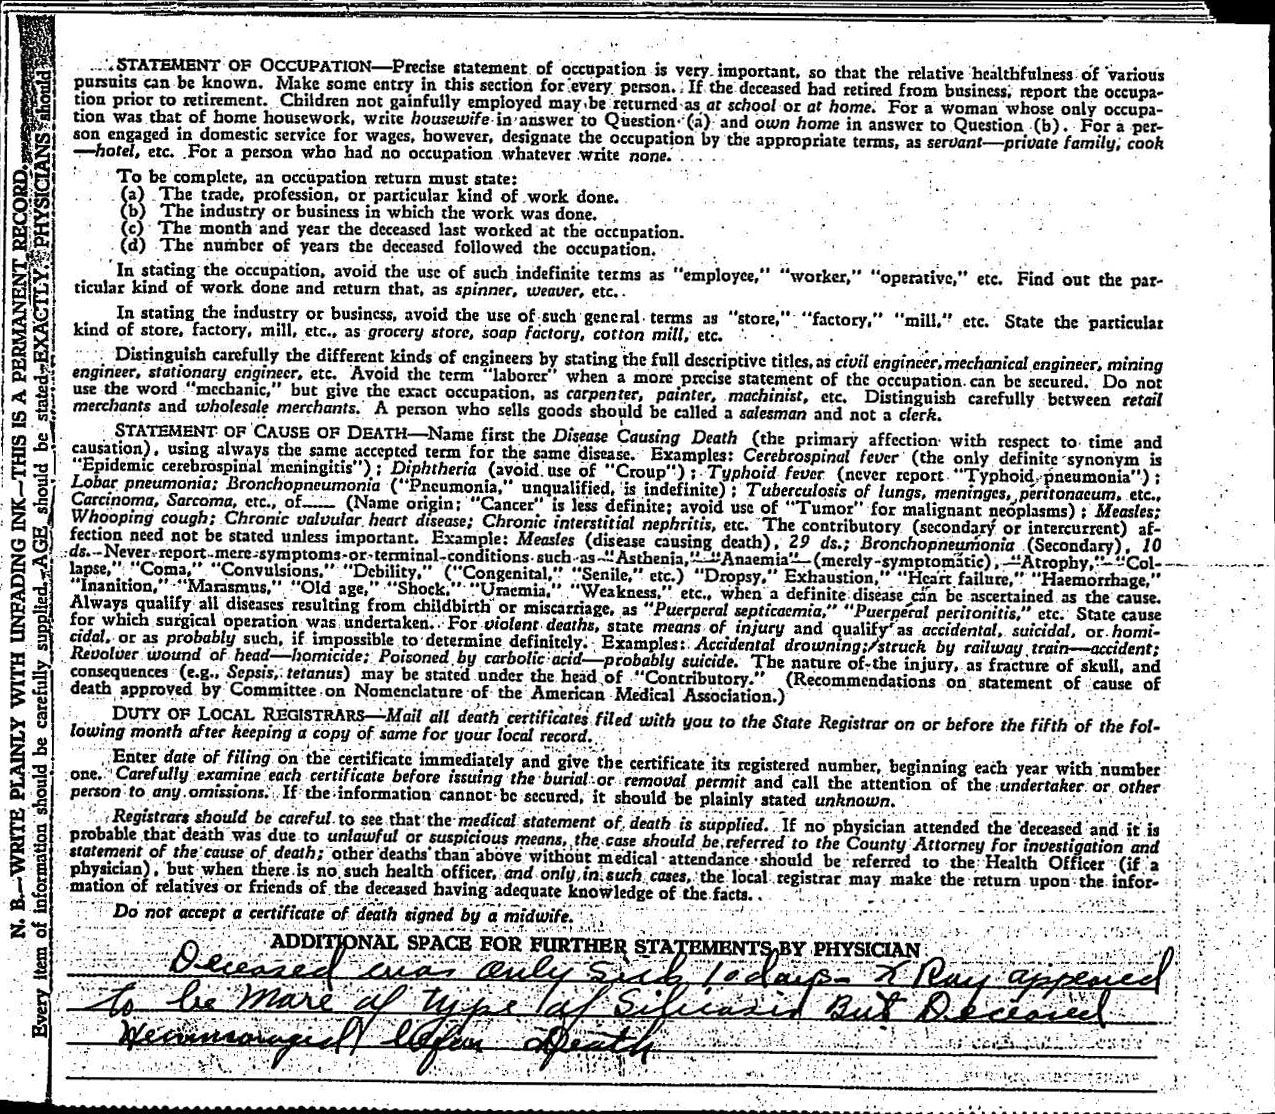 STATEMENT OF OCCUPATION—Precise statement of occupation is very important, so that the relative healthfulness of various
pursuits can be known. Make some entry in this section for every person. If the deceased had retired from business, report the occupa-
tion prior to retirement. Children not gainfully employed may be returned as at school or at home. For a woman whose only occupa-
tion was that of home housework, write housewife in answer to Question (a) and own home in answer to Question (b). For a per-
son engaged in domestic service for wages, however, designate the occupation by the appropriate terms, as servant—private family, cook
—hotel, etc. For a person who had no occupation whatever write none.
To be complete, an occupation return must state:
(a) The trade, profession, or particular kind of work done.
(b) The industry or business in which the work was done.
(c) The month and year the deceased last worked at the occupation.
(d) The number of years the deceased followed the occupation.
In stating the occupation, avoid the use of such indefinite terms as "employee," "worker," "operative," etc. Find out the par-
ticular kind of work done and return that, as spinner, weaver, etc.
In stating the industry or business, avoid the use of such general terms as "store," "factory," "mill," etc. State the particular
kind of store, factory, mill, etc., as grocery store, soap factory, cotton mill, etc.
Distinguish carefully the different kinds of engineers by stating the full descriptive titles, as civil engineer, mechanical engineer, mining
engineer, stationary engineer, etc. Avoid the term "laborer" when a more precise statement of the occupation can be secured. Do not
use the word "mechanic," but give the exact occupation, as carpenter, painter, machinist, etc. Distinguish carefully between retail
merchants and wholesale merchants. A person who sells goods should be called a salesman and not a clerk.
STATEMENT OF CAUSE OF DEATH—Name first the Disease Causing Death (the primary affection with respect to time and
causation), using always the same accepted term for the same disease. Examples: Cerebrospinal fever (the only definite synonym is
"Epidemic cerebrospinal meningitis"); Diphtheria (avoid use of "Croup"); Typhoid fever (never report "Typhoid pneumonia");
Lobar pneumonia; Bronchopneumonia ("Pneumonia," unqualified, is indefinite); Tuberculosis of lungs, meninges, peritonaeum, etc.,
Carcinoma, Sarcoma, etc., of____ (Name origin; "Cancer" is less definite; avoid use of "Tumor" for malignant neoplasms); Measles;
Whooping cough; Chronic valvular heart disease; Chronic interstitial nephritis, etc. The contributory (secondary or intercurrent) af-
fection need not be stated unless important. Example: Measles (disease causing death), 29 ds.; Bronchopneumonia (Secondary), 10
ds. Never report mere symptoms or terminal conditions such as "Asthenia," "Anaemia" (merely symptomatic), "Atrophy," "Col-
lapse," "Coma," "Convulsions," "Debility," ("Congenital," "Senile," etc.) "Dropsy," Exhaustion," "Heart failure," "Haemorrhage,"
"Inanition," "Marasmus," "Old age," "Shock," "Uraemia," "Weakness," etc., when a definite disease can be ascertained as the cause.
Always qualify all diseases resulting from childbirth or miscarriage, as "Puerperal septicaemia," "Puerperal peritonitis," etc. State cause
for which surgical operation was undertaken. For violent deaths, state means of injury and qualify as accidental, suicidal, or homi-
cidal, or as probably such, if impossible to determine definitely. Examples: Accidental drowning; struck by railway train—accident;
Revolver wound of head—homicide; Poisoned by carbolic acid—probably suicide. The nature of the injury, as fracture of skull, and
consequences (e.g., Sepsis, tetanus) may be stated under the head of "Contributory." (Recommendations on statement of cause of
death approved by Committee on Nomenclature of the American Medical Association.)
DUTY OF LOCAL REGISTRARS—Mail all death certificates filed with you to the State Registrar on or before the fifth of the fol-
lowing month after keeping a copy of same for your local record.
Enter date of filing on the certificate immediately and give the certificate its registered number, beginning each year with number
one. Carefully examine each certificate before issuing the burial or removal permit and call the attention of the undertaker or other
person to any omissions. If the information cannot be secured, it should be plainly stated unknown.
Registrars should be careful to see that the medical statement of death is supplied. If no physician attended the deceased and it is
probable that death was due to unlawful or suspicious means, the case should be referred to the County Attorney for investigation and
statement of the cause of death; other deaths than above without medical attendance should be referred to the Health Officer (if a
physician), but when there is no such health officer, and only in such cases, the local registrar may make the return upon the infor-
mation of relatives or friends of the deceased having adequate knowledge of the facts.
Do not accept a certificate of death signed by a midwife.
ADDITIONAL SPACE FOR FURTHER STATEMENTS BY PHYSICIAN
Deceased was only sick 10 days- X Ray appeared
to be More of type of Silicosis But Deceased
Hemmoraged Death
N. B.—WRITE PLAINLY WITH UNFADING INK—THIS IS A PERMANENT RECORD.
Every item of information should be carefully supplied. AGE should be stated EXACTLY. PHYSICIANS should